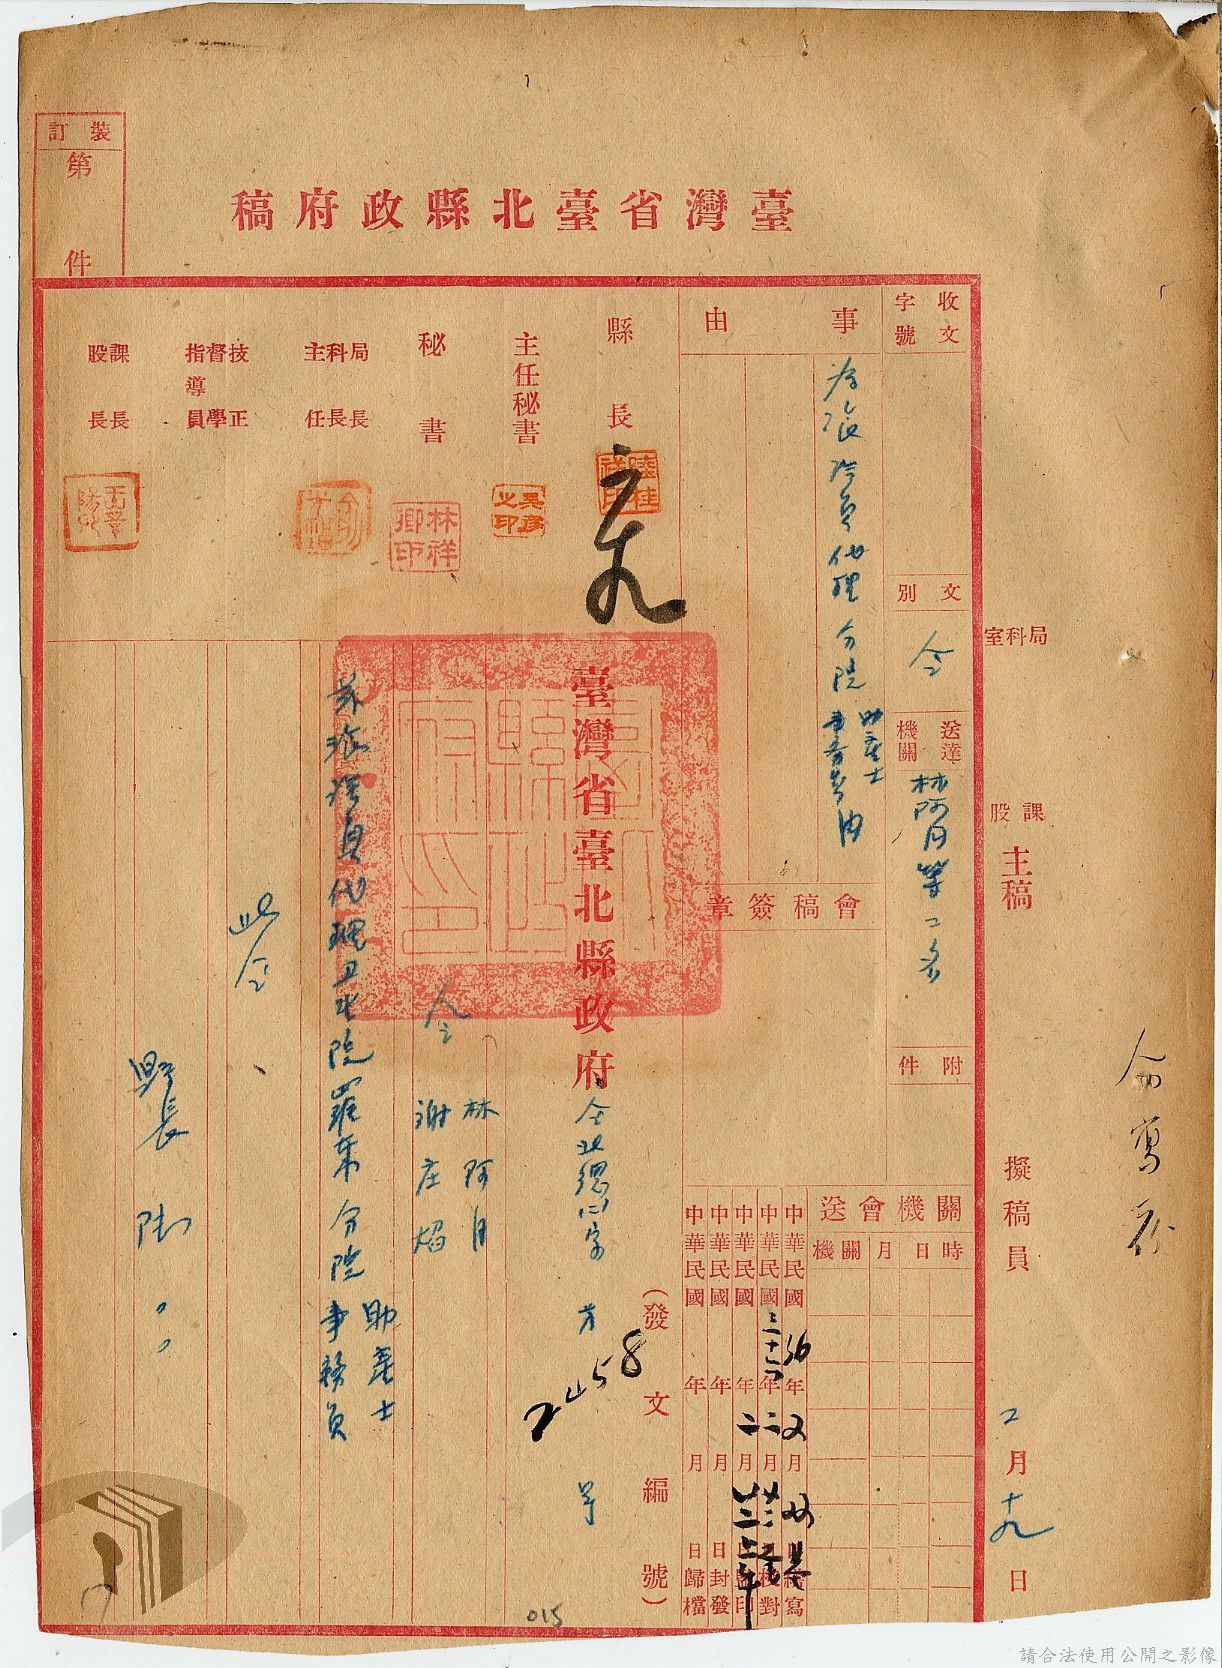 臺灣省臺北縣政府稿
裝訂
第 件
收文
字號
文別
令
送達機關
林阿月等二名
附件
事由
為派 員代理分院助產士事務員由
會稿簽章
關機會送
時日月關機
中華民國36年2月 日繕寫
中華民國三十六年二月 日校對
中華民國 年二月 日蓋印
中華民國 年 月 日封發
中華民國 年 月 日歸檔
(發文編號)
縣長
主任秘書
秘書
局長
科長
主任
技正
督學
指導員
課長
股長
林祥卿印
臺灣省臺北縣政府
令
字第 號
2458
林阿月
謝庄焰
茲派該員代理卫生院羅東分院助產士
事務員
此令
縣長 陸
局科室
課股
主稿
擬稿員
二月十九日
015
請合法使用公開之影像